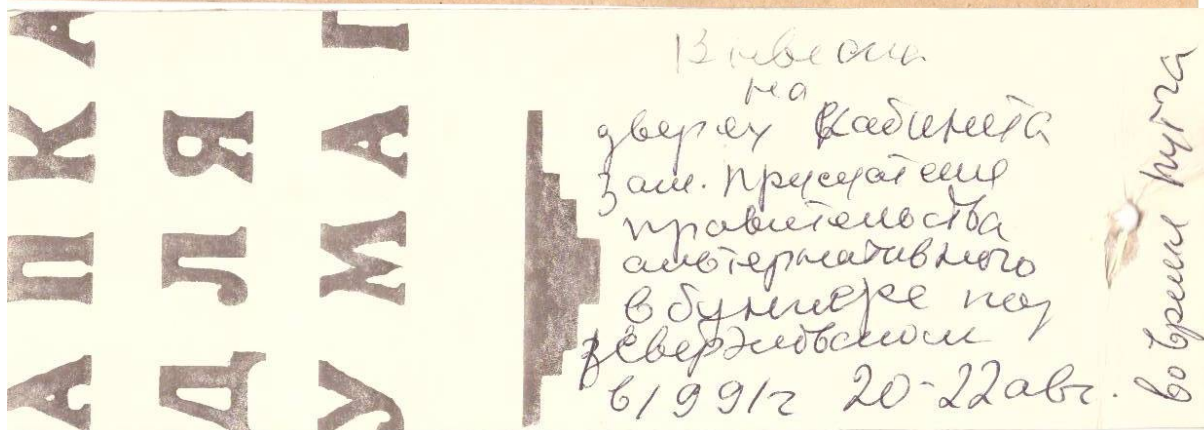 АПКА
ДЛЯ
УМАГ
Вывеска
на
дверях кабинета
зам. председателя
правительства
альтернативного
в бункере под
Свердловском
в 1991г 20-22 авг.
во время путча